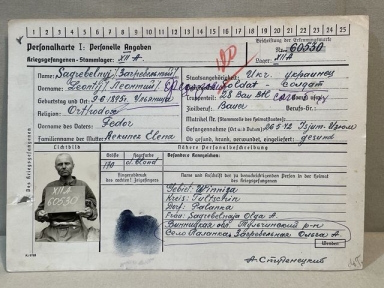 1 2 3 4 5 6 7 8 9 10 11 12 13 14 15 16 17 18 19 20 21 22 23 24 25
Personalkarte I: Personelle Angaben
Beschriftung der Erkennungsmarke
Kriegsgefangenen-Stammlager: XII A
Nr. 60530
Lager: XII A
Name: Sagrebelnyj / Загребельный /
Staatsangehörigkeit: Ukr. украинец
Vorname: Leontij / Леонтий /
Dienstgrad: Soldat солдат
Geburtstag und Ort:
Truppenteil: 28 Bau Btl
Religion: Orthodox
Zivilberuf: Bauer
Vorname des Vaters: Fedor
Gefangennahme (Ort und Datum): 26.5.42 Isjum
Familienname der Mutter: Elena
Ob gesund, krank, verwundet, eingeliefert: gesund
Des Kriegsgefangenen
Lichtbild
Nähere Personalbeschreibung
Größe
Haarfarbe
Besondere Kennzeichen:
170
Blond
XII A
60530
Fingerabdruck
des rechten! Zeigefingers
Name und Anschrift der zu benachrichtigenden Person in der Heimat
des Kriegsgefangenen
Gebiet: Winniza
Kreis: Tultschin
Dorf: Palanka
Frau: Sagrebelnaja Olga A
Винницкая обл. Тульчинский р-н
Село Паланка, Загребельная Ольга А.
Wenden!